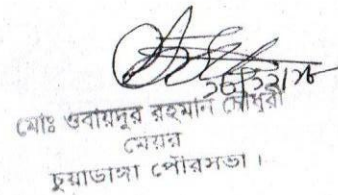 মোঃ ওবায়দুর রহমান চৌধুরী
মেয়র
চুয়াডাঙ্গা পৌরসভা।